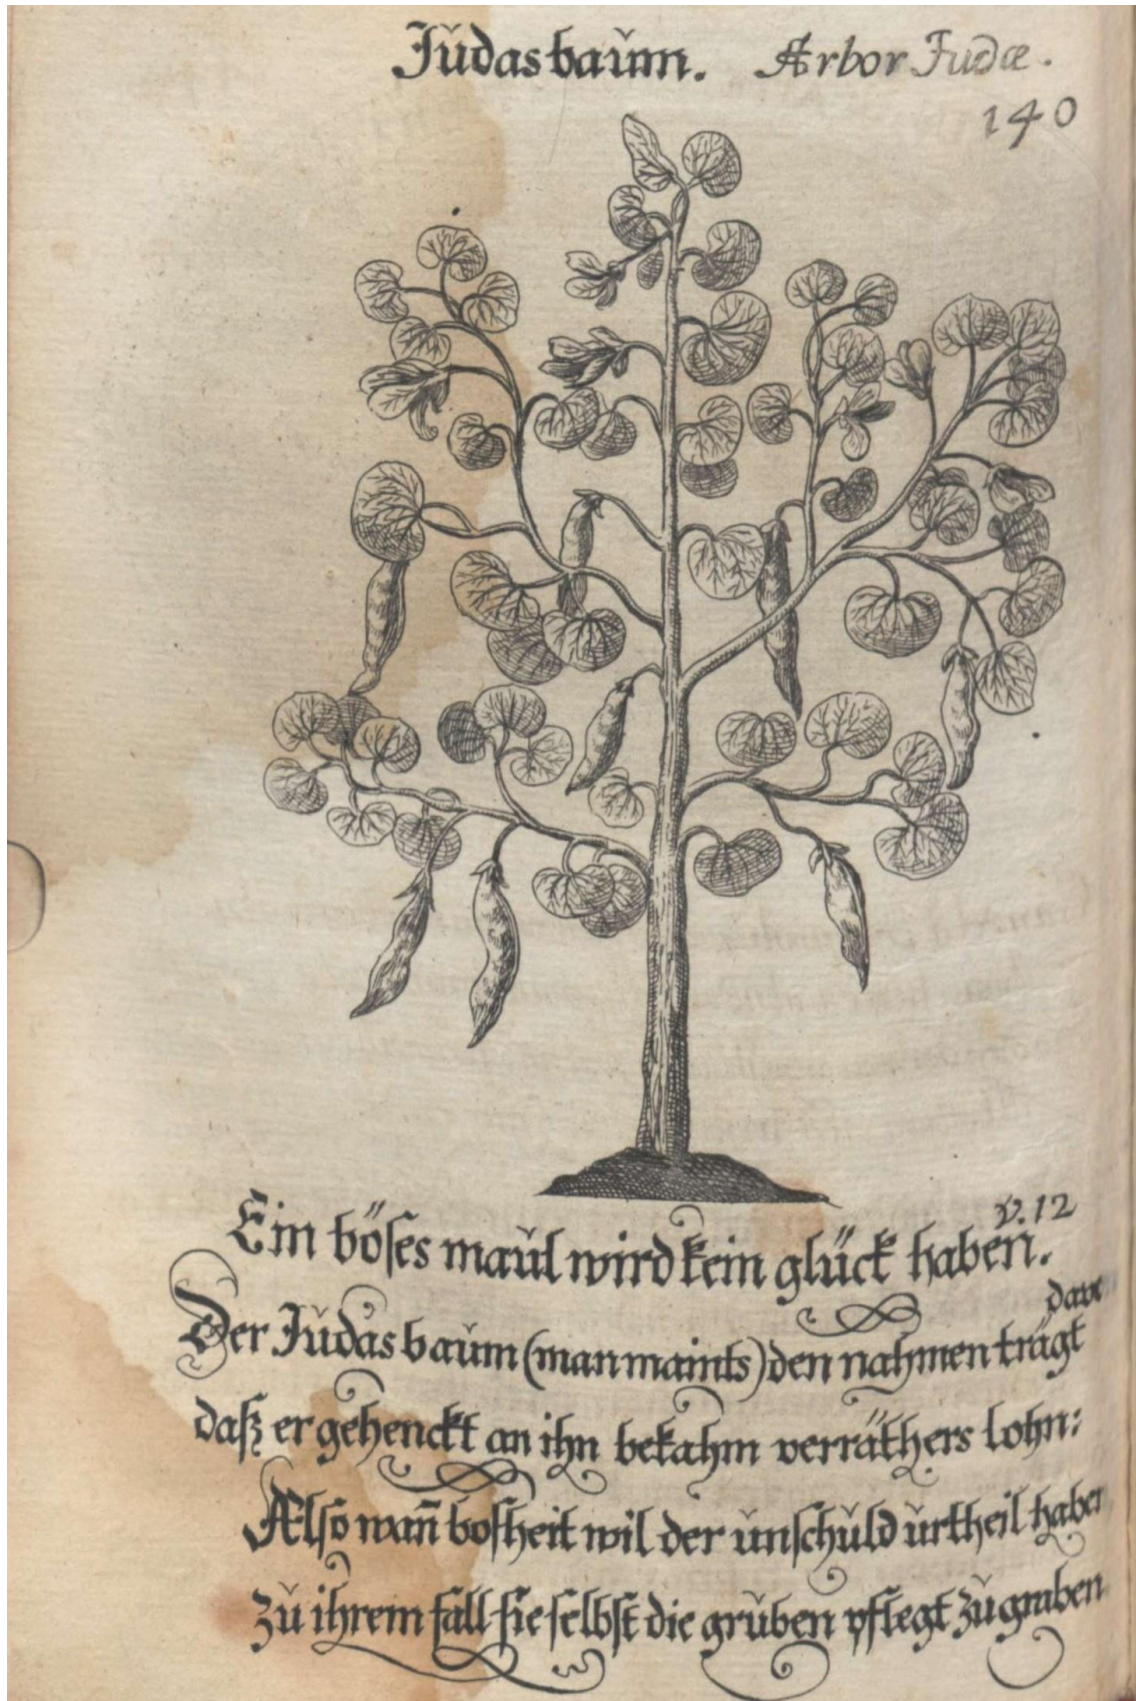 Jŭdasbaŭm. Arbor Judæ.
140
v. 12
Ein böses maŭl wird kein glück haben.
Der Jŭdasbaŭm (man maints) den nahmen trägt
daß er gehenckt an ihn bekahm verräthers lohn:
Also wan̄ boſheit wil der ŭnſchŭld ŭrtheil haben
Zŭ ihrem fall ſie ſelbſt die grŭben pflegt zŭ graben